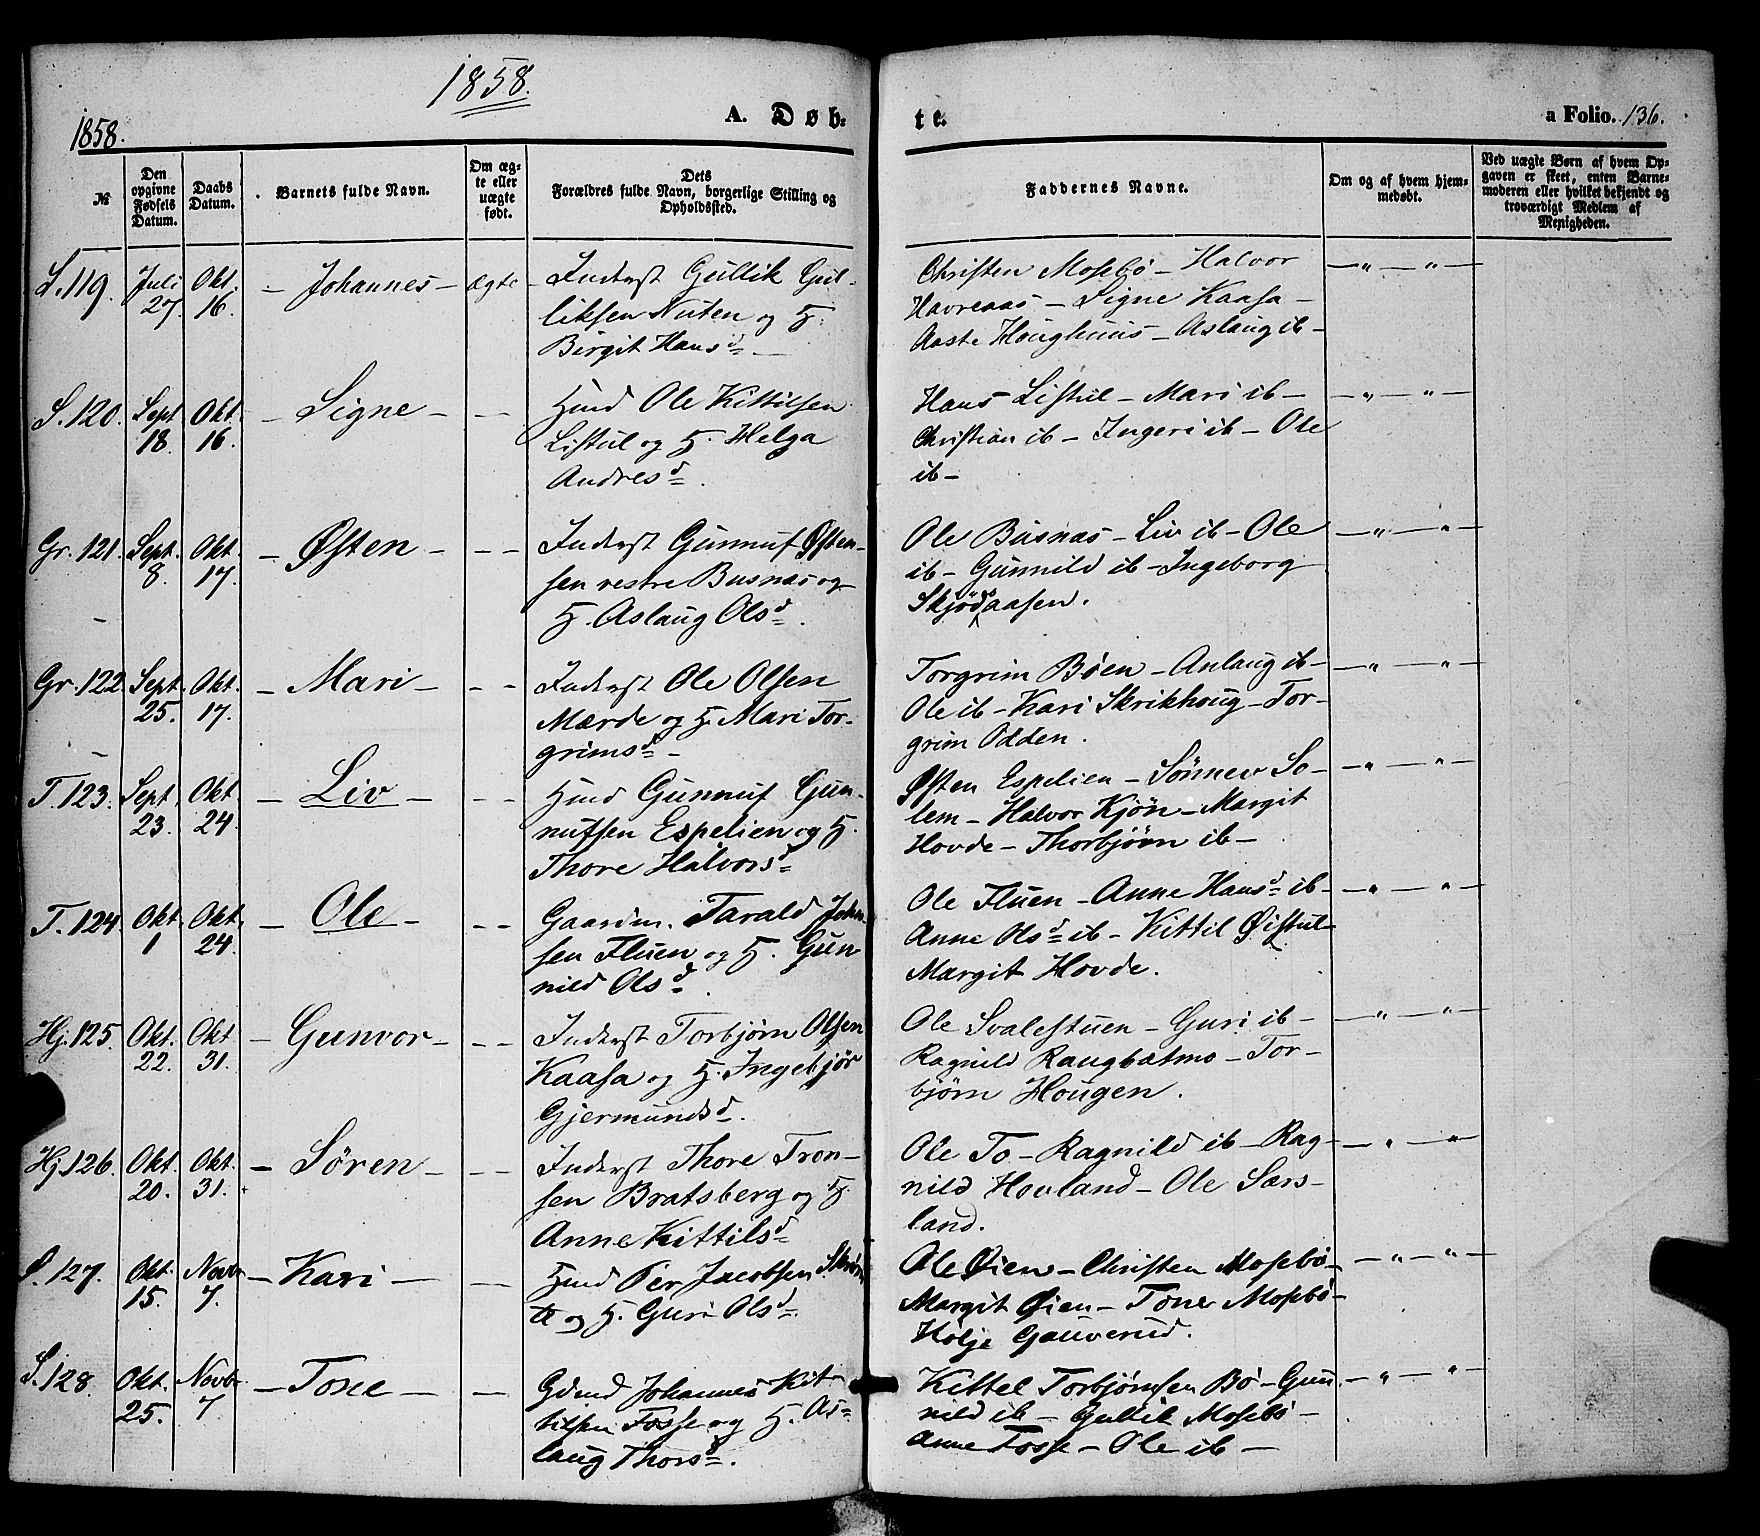 1858.
1858.
A. Døb-
te.
a Folio. 136.
№
Den opgivne Fødsels Datum.
Daabs Datum.
Barnets fulde Navn.
Om ægte eller uægte født.
Dets Forældres fulde Navn, borgerlige Stilling og Opholdssted.
Faddernes Navne.
Om og af hvem hjemmedøbt.
Ved uægte Børn af hvem Opgaven er skeet, enten Barnemoderen eller hvilket bekjendt og troværdigt Medlem af Menigheden.
S. 119. Juli 27. Okt. 16. – Johannes – ægte
Inderst Gullik Gul-
liksen Nuten og H.
Birgit Hansd. –
Christen Mosebö – Halvor
Havreaas – Signe Kaasa –
Aaste Houghuus – Aslaug ib – – " – " –
S. 120. Sept 18. Okt. 16. – Signe – – –
Hmd Ole Kittilsen
Listul og H. Helga
Andresd.
Hans Listul – Mari ib –
Christian ib – Ingeri ib – Ole
ib – – " – " –
Gr. 121. Sept. 8. Okt. 17. – Østen – – –
Inderst Gunnuf Østen-
sen vestre Busnas og
H. Aslaug Olsd.
Ole Busnas – Liv ib – Ole
ib – Gunnild ib – Ingeborg
Skjödsaasen. – " – " –
Gr. 122. Sept. 25. Okt. 17. – Mari – – –
Inderst Ole Olsen
Mærde og H. Mari Tor-
grimsd. –
Torgrim Böen – Anlaug ib –
Ole ib – Kari Skrikhoug – Tor-
grim Odden. – " – " –
T. 123. Sept. 23. Okt. 24. – Liv – – –
Hmd Gunnuf Gun-
nufsen Espelien og H.
Thore Halvorsd.
Østen Espelien – Sönnev So-
lem – Halvor Kjön – Margit
Hovde – Thorbjörn ib – – " – " –
T. 124. Okt. 1 Okt. 24. – Ole – – –
Gaardm. Tarald John-
sen Fluen og H. Gun
nild Olsd.
Ole Fluen – Anne Hansd. ib –
Anne Olsd. ib – Kittil Øistul –
Margit Hovde. – " – " –
Hj. 125. Okt. 22. Okt 31. – Gunvor – – –
Inderst Torbjörn Olsen
Kaasa og H. Ingebjör
Gjermundsd.
Ole Svalestuen – Guri ib –
Ragnild Raugbatmo – Tor-
björn Hougen. – " – " –
Hj. 126. Okt. 20. Okt. 31. – Sören – – –
Inderst Thore Tron-
sen Bratsberg og H.
Anne Kittilsd.
Ole To – Ragnild ib – Rag-
nild Hovland – Ole Sars-
land. – " – " –
S. 127. Okt. 15. Novbr 7. – Kari – –
Hmd Per Jacobsen
og H. Guri Olsd.
Ole Øien – Christen Mosebö –
Margit Øien – Tone Mosebö –
Holje Gauverud. – " – " –
S. 128. Okt. 25. Novbr 7 – Tone – –
Gdmd Johannes Kit-
tilsen Fosse og H. As-
laug Thorsd.
Kittel Torbjörnsen Bö – Gun
nild ib – Gullik Mosebö –
Anne Fosse – Ole ib – – " – " –